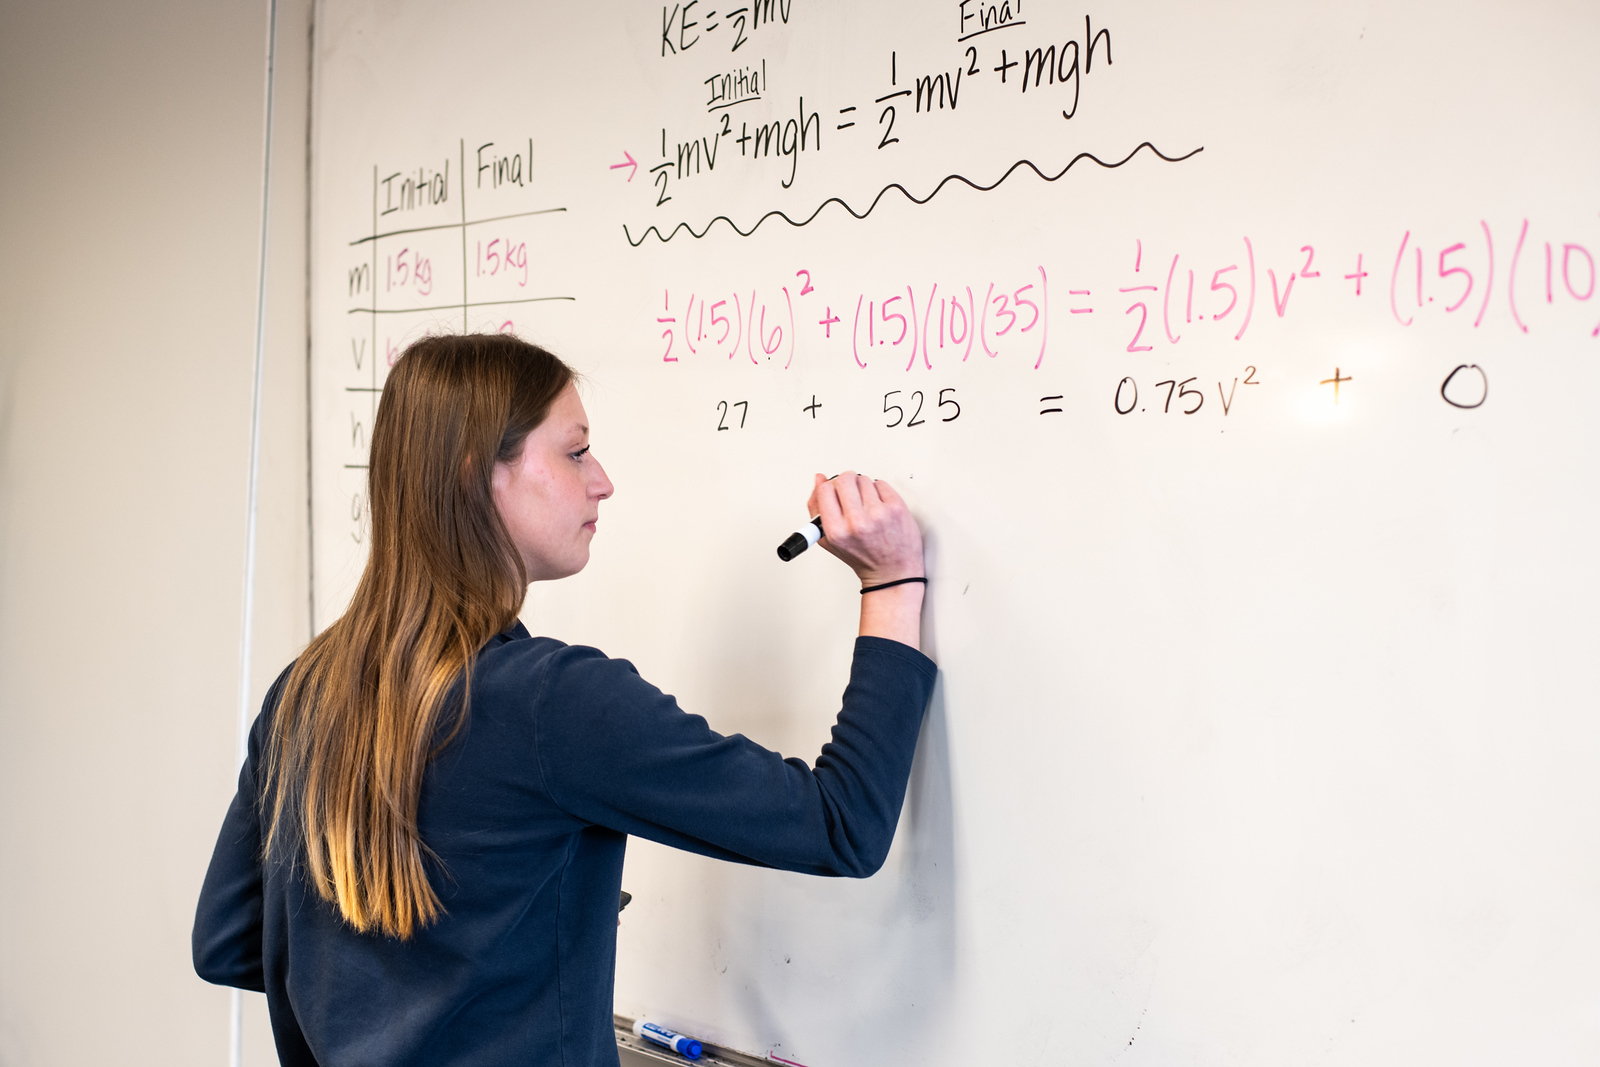 KE = 1/2 mv
Initial
Final
→ 1/2 mv² + mgh = 1/2 mv² + mgh
Initial | Final
m | 1.5 kg | 1.5 kg
v
h
g
1/2 (1.5)(6)² + (1.5)(10)(35) = 1/2 (1.5) v² + (1.5)(10)
27 + 525 = 0.75 v² + 0